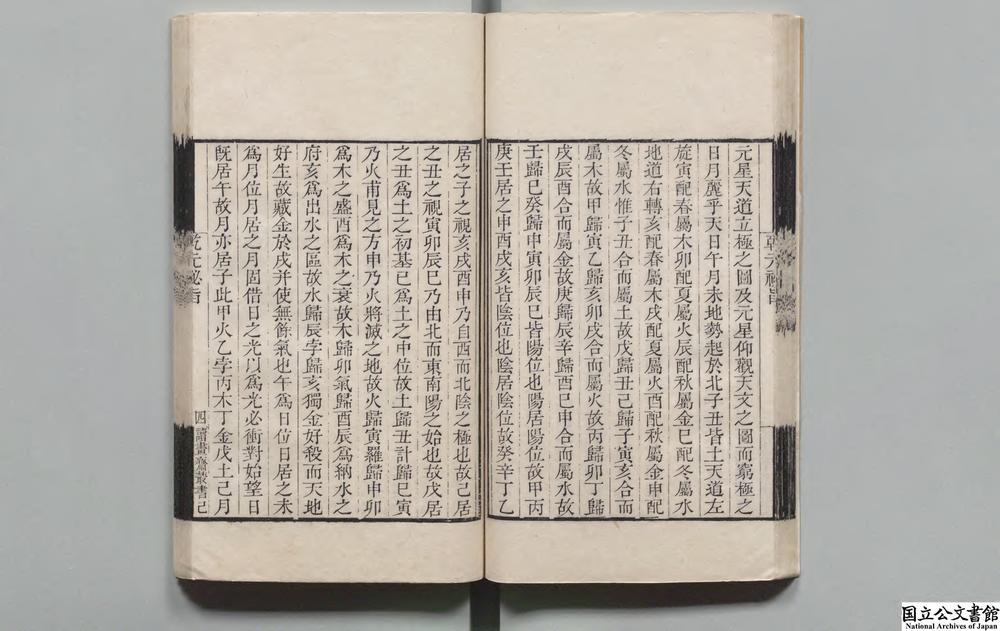 元星天道立極之圖及元星仰觀天文之圖而窮極之
日月麗乎天日午月未地勢起於北子丑皆土天道左
旋寅配春屬木卯配夏屬火辰配秋屬金巳配冬屬水
地道右轉亥配春屬木戌配夏屬火酉配秋屬金申配
冬屬水惟子丑合而屬土故戊歸丑己歸子寅亥合而
屬木故甲歸寅乙歸亥卯戌合而屬火故丙歸卯丁歸
戌辰酉合而屬金故庚歸辰辛歸酉巳申合而屬水故
壬歸巳癸歸申寅卯辰巳皆陽位也陽居陽位故甲丙
庚壬居之申酉戌亥皆陰位也陰居陰位故癸辛丁乙
居之子之視亥戌酉申乃自西而北陰之極也故己居
之丑之視寅卯辰巳乃由北而東南陽之始也故戊居
之丑爲土之初基巳爲土之中位故土歸丑計歸巳寅
乃火甫見之方申乃火將滅之地故火歸寅羅歸申卯
爲木之盛酉爲木之衰故木歸卯氣歸酉辰爲納水之
府亥爲出水之區故水歸辰孛歸亥獨金好殺而天地
好生故藏金於戌并使無餘氣也午爲日位日居之未
爲月位月居之月固借日之光以爲光必衝對始望日
既居午故月亦居子此甲火乙孛丙木丁金戊土己月
乾元秘旨
四
讀畫齋叢書己
国立公文書館
National Archives of Japan